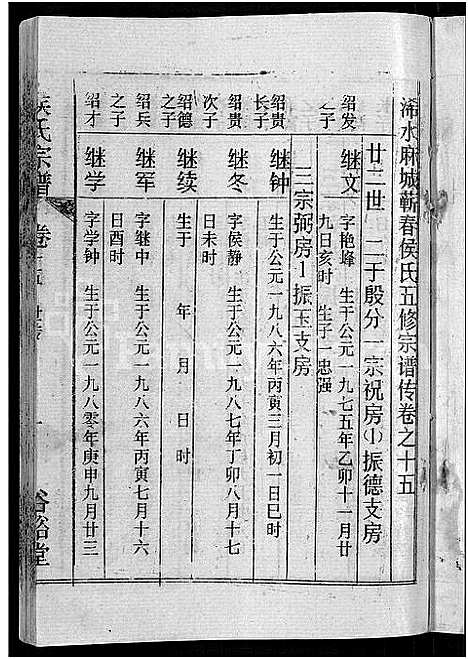 浠水麻城蕲春侯氏五修宗谱传卷之十五
廿二世 二于殷分一宗祝房(1)振德支房
绍发之子
继文 字艳峰 生于公元一九七五年乙卯十一月廿
九日亥时 生子一忠强
三宗弼房1振玉支房
绍贵长子
继钟 生于公元一九八六年丙寅三月初一日巳时
绍贵次子
继冬 字侯静 生于公元一九八七年丁卯八月十七
日未时
绍德之子
继续 生于 年 月 日 时
绍兵之子
继军 字继中 生于公元一九八六年丙寅七月十六
日酉时
绍才之子
继学 字学钟 生于公元一九八零年庚申九月廿三
侯氏宗谱 卷十五
谷诒堂